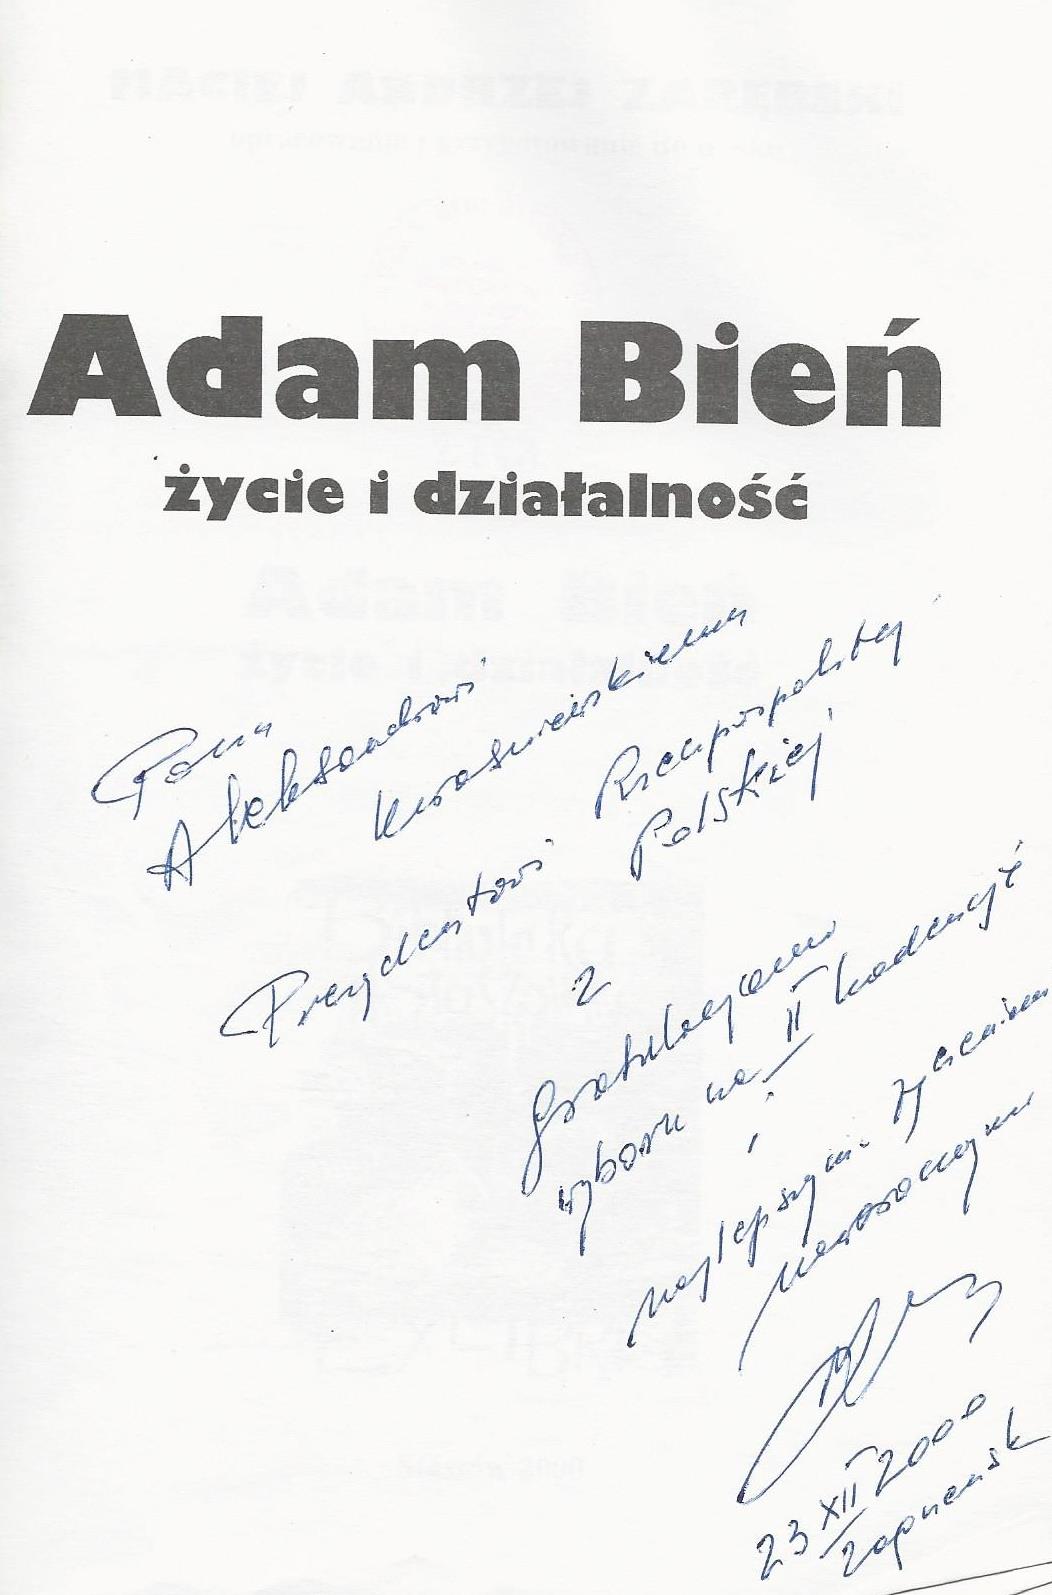 Adam Bień
życie i działalność
Panu
Aleksandrowi
Kwaśniewskiemu
Prezydentowi Rzeczpospolitej
Polskiej
z
gratulacjami
wyboru na II kadencję
i
najlepszymi życzeniami
noworocznymi
23 XII 2000